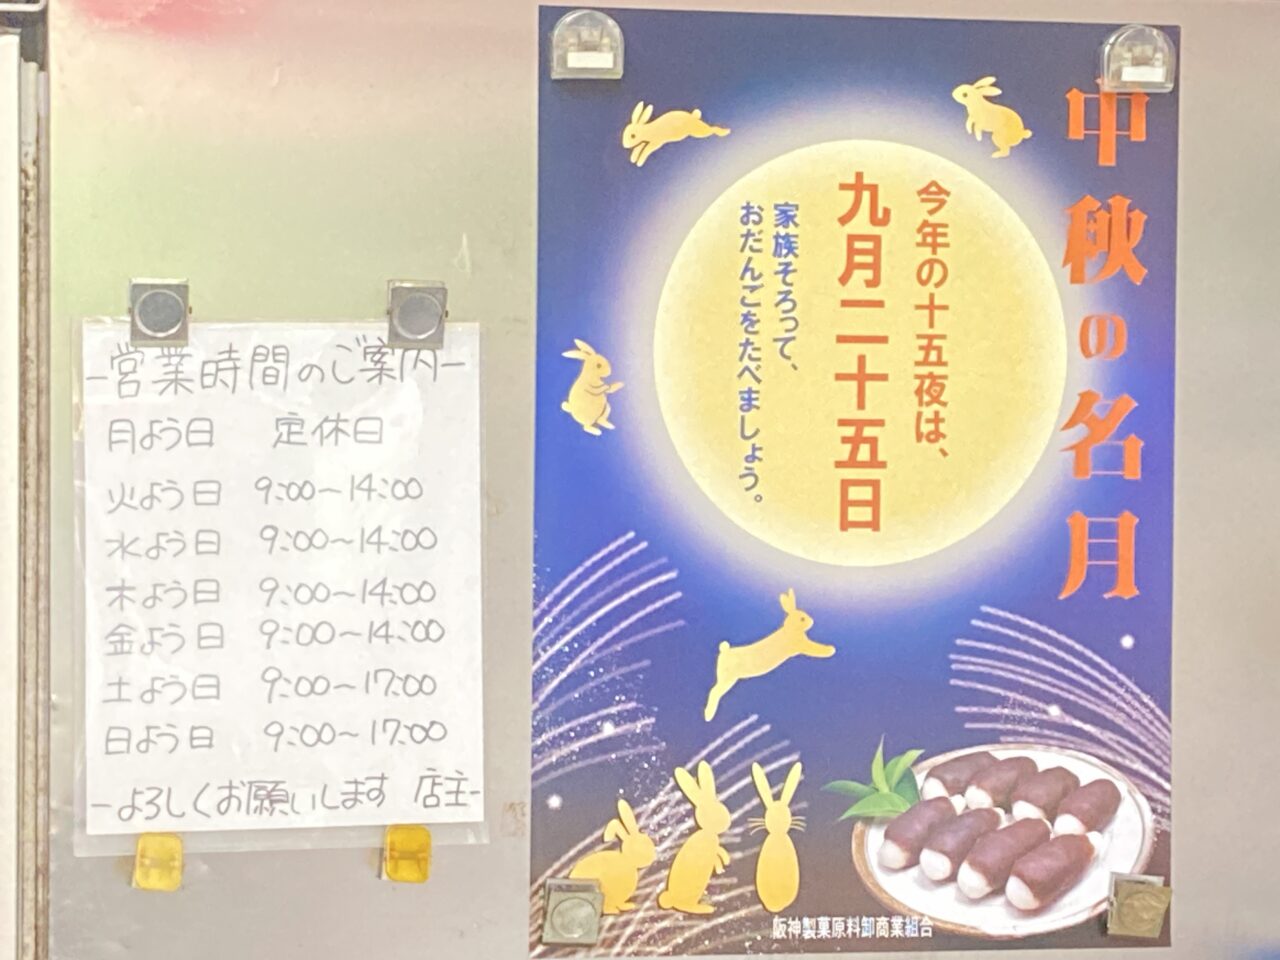 -営業時間のご案内-
月よう日 定休日
火よう日 9:00~14:00
水よう日 9:00~14:00
木よう日 9:00~14:00
金よう日 9:00~14:00
土よう日 9:00~17:00
日よう日 9:00~17:00
-よろしくお願いします 店主-
中秋の名月
今年の十五夜は、
九月二十五日
家族そろって、
おだんごをたべましょう。
阪神製菓原料卸商業組合